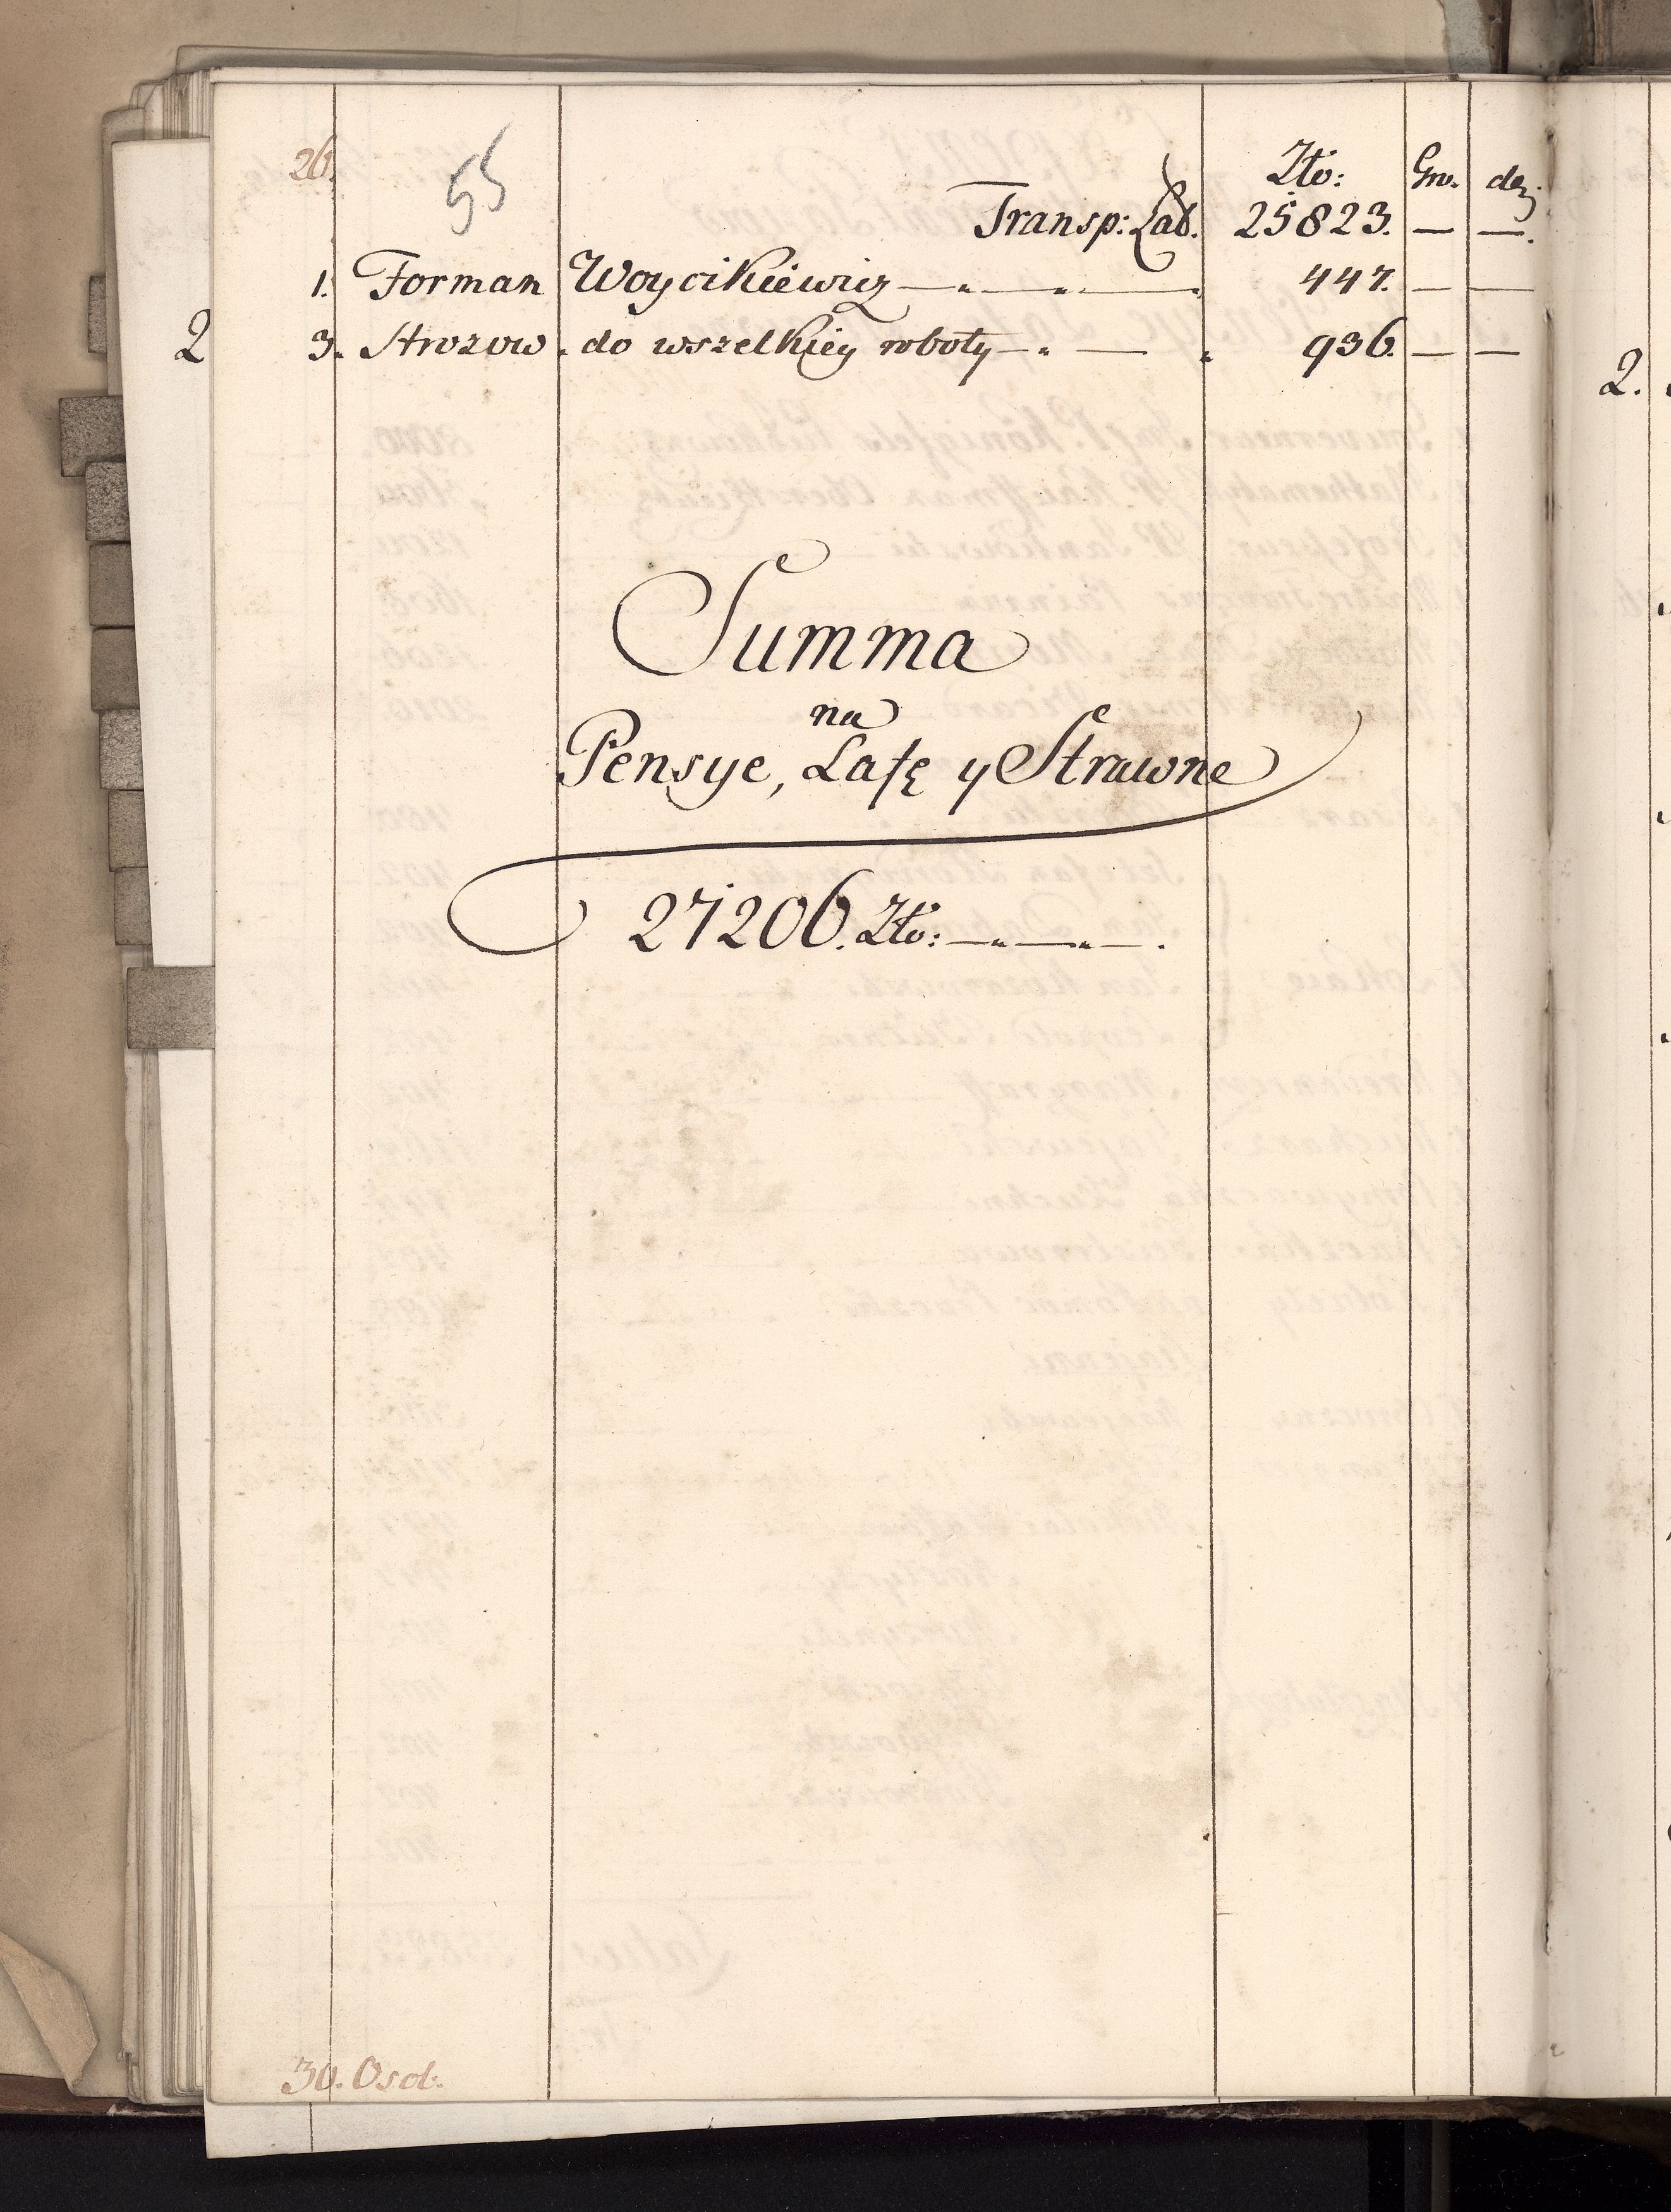 26.
55
Złło: Gro. de:
Transp: Lat. 25823. — —.
1. Forman Woycikiewicz — „ — „ — 447. — —
3. Strozow. do wszelkiey roboty — „ — „ 936. — —
2
2.
Summa
na
Pensye, Lafę y Strawne
27206. Złło: — „ — „ — .
30. Osob.